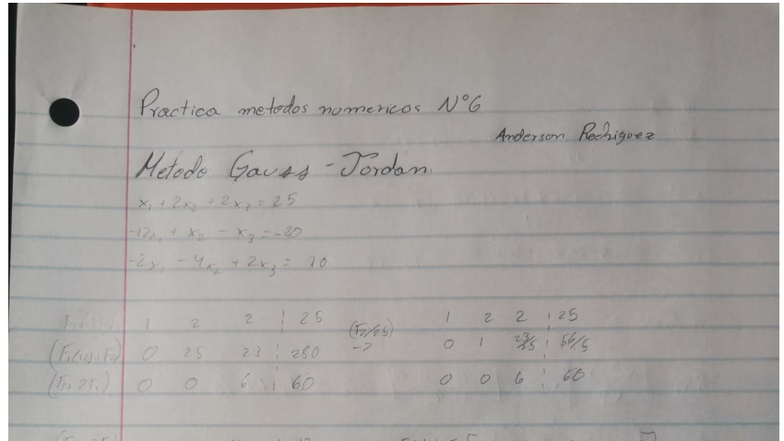 Practica metodos numericos N°6
Anderson Rodriguez
Metodo Gauss-Jordan
x₁ + 2x₂ + 2x₃ = 25
-12x₁ + x₂ - x₃ = -20
-2x₁ - 4x₂ + 2x₃ = 10
1 2 2 ¦ 25 1 2 2 ¦ 25
0 25 23 ¦ 280 (F₂/25) -> 0 1 23/25 ¦ 56/5
0 0 6 ¦ 60 0 0 6 ¦ 60